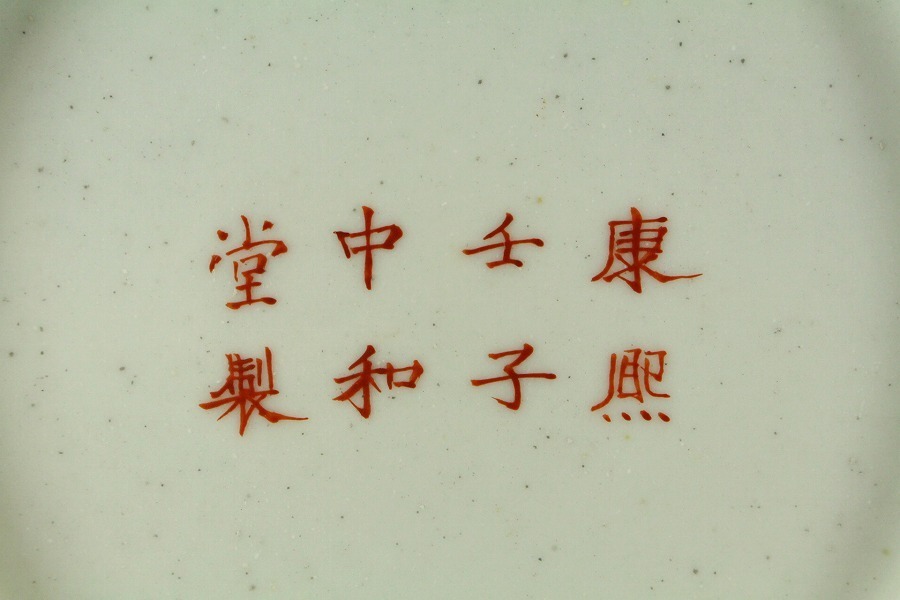 康熙
壬子
中和
堂製